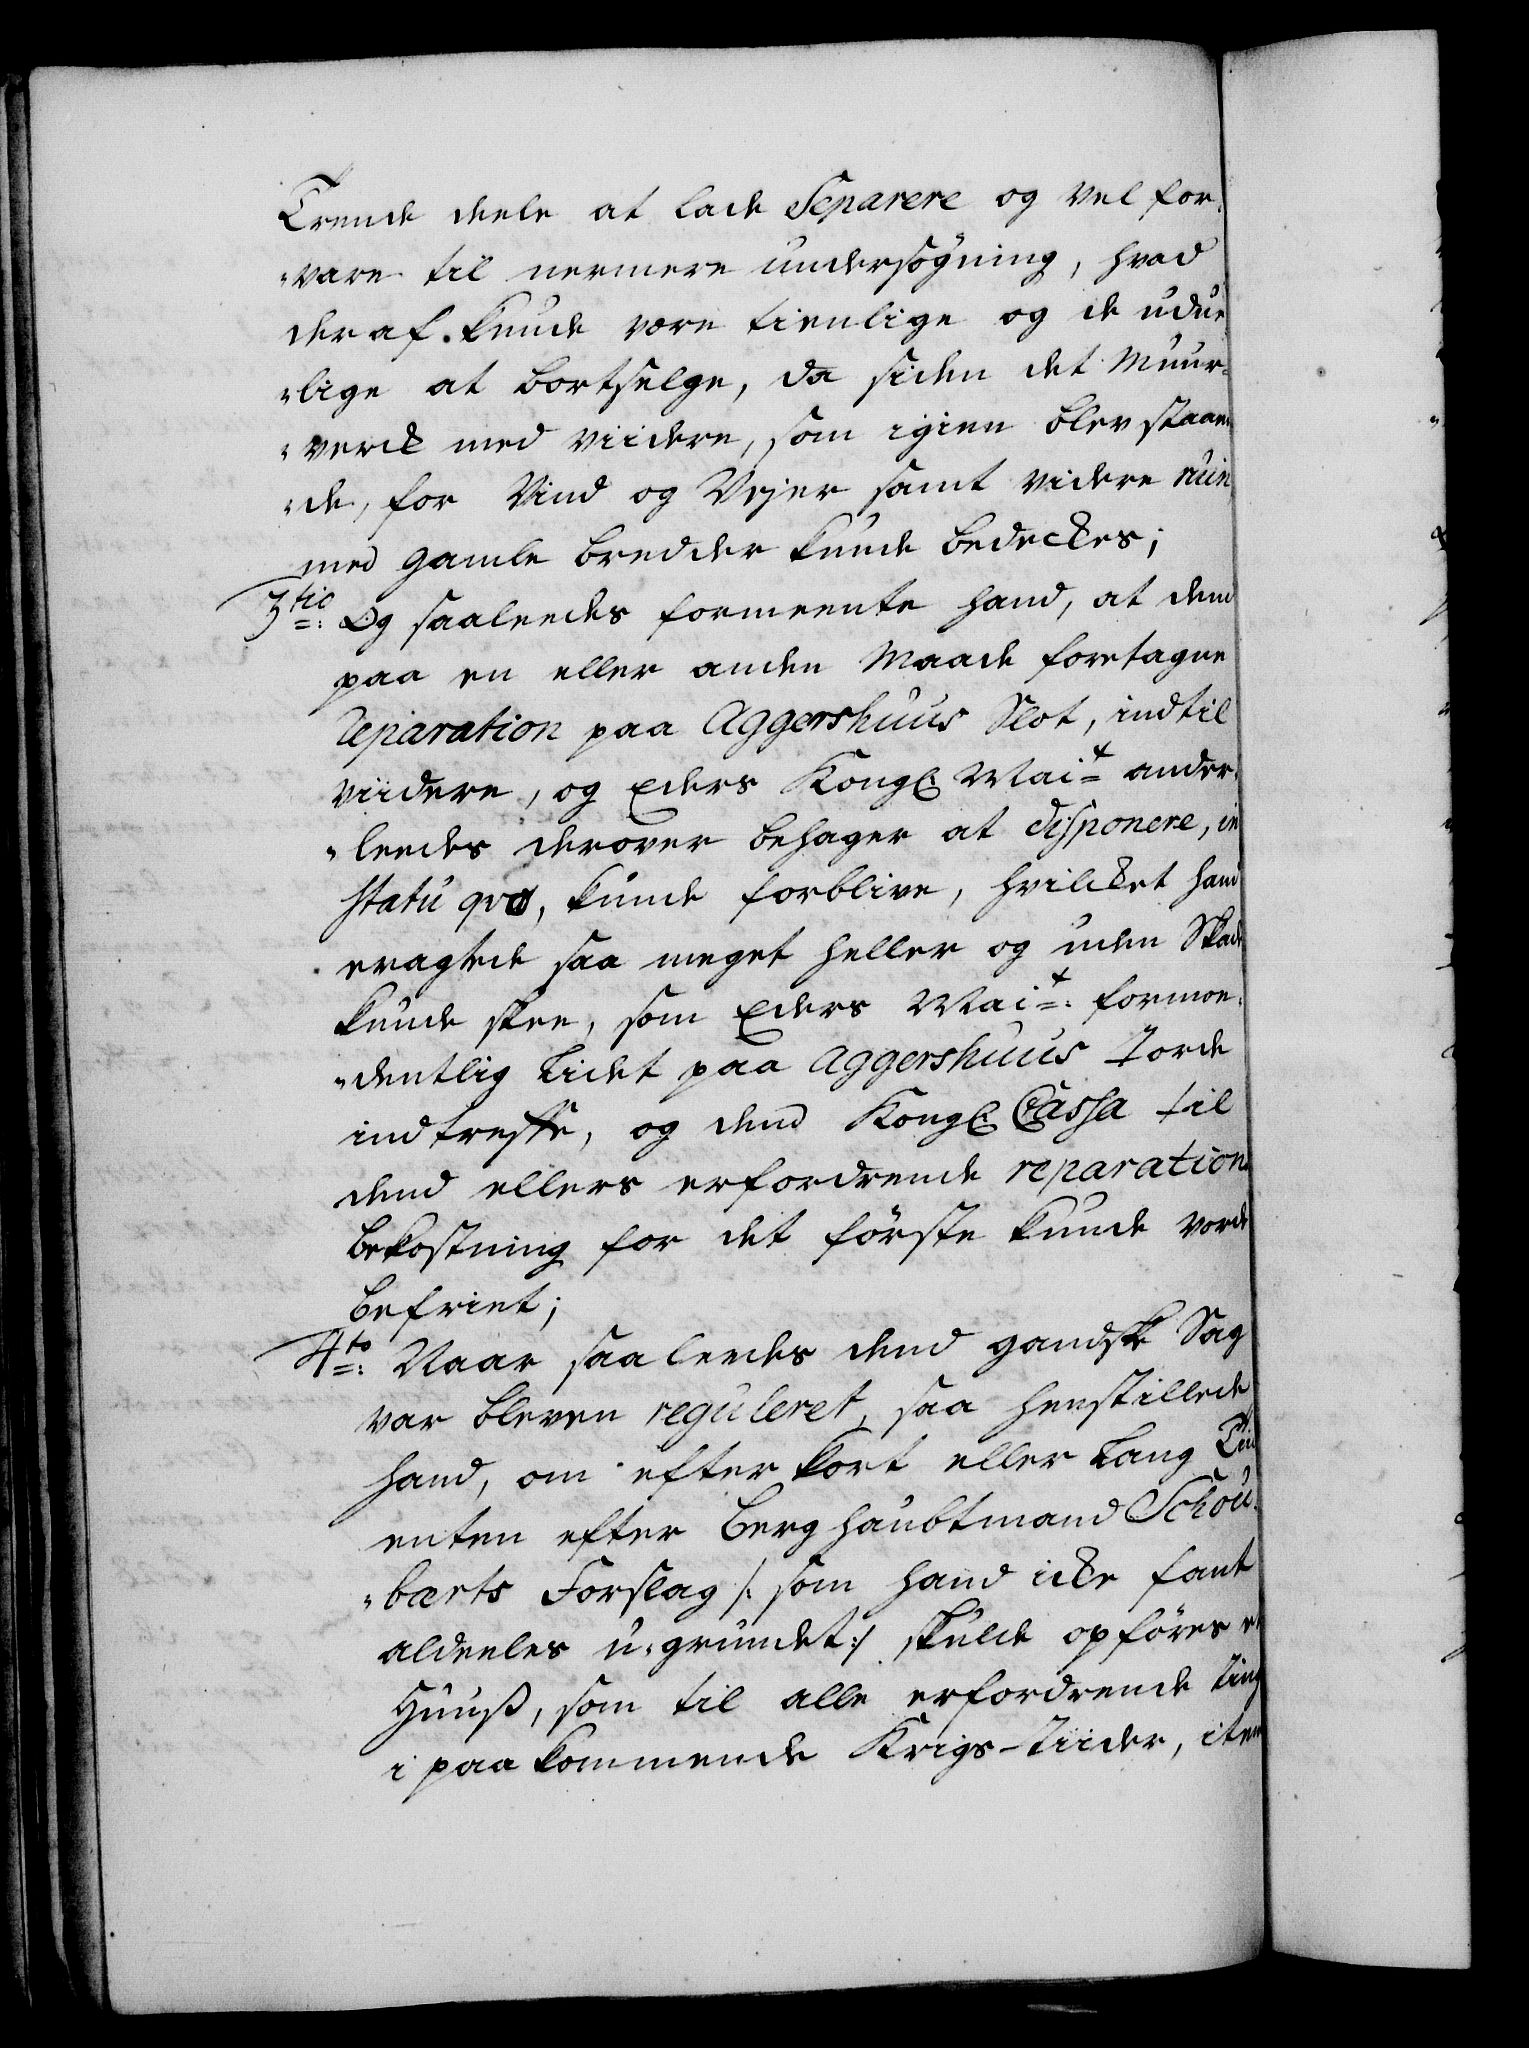 Trende deele at lade Separere og vel for-
"vare til nermere undersøgning, hvad
deraf kunde være tienlige og de udue
"lige at bortselge, da siden det Muur-
"verck med viidere, som igien blev staaen
"de, for Vind og Vejer samt videre ruin
med gamle bredder kunde bedeckes;
3tio: Og saaleedes formeente hand, at dend
paa en eller anden Maade foretagne
reparation paa Aggershuus Slot, indtil
viidere, og Eders Kongl. Mait ander-
"leedes derover behager at disponere, in
statu qvo, kunde forblive, hvilcket hand
eragtede saa meget heller og uden Skade
kunde skee, som Eders Mait: formoe-
"dentlig Lidet paa Aggershuus torde
indtreffe, og dend Kongl. Cassa til
dend ellers erfordrende reparations
bekostning for det første kunde vorde
befriet;
4to: Naar saaleedes dend gandske Sag
var bleven reguleret, saa henstillede
hand, om efter kort eller Lang Tiid
enten efter Berghaubtmand Schou-
"bærts Forslag /: som hand icke fant
aldeeles u-grundet :/ skulde opføres et
Huuß, som til alle erfordrende ting
i paakommende Krigs-tiider, item